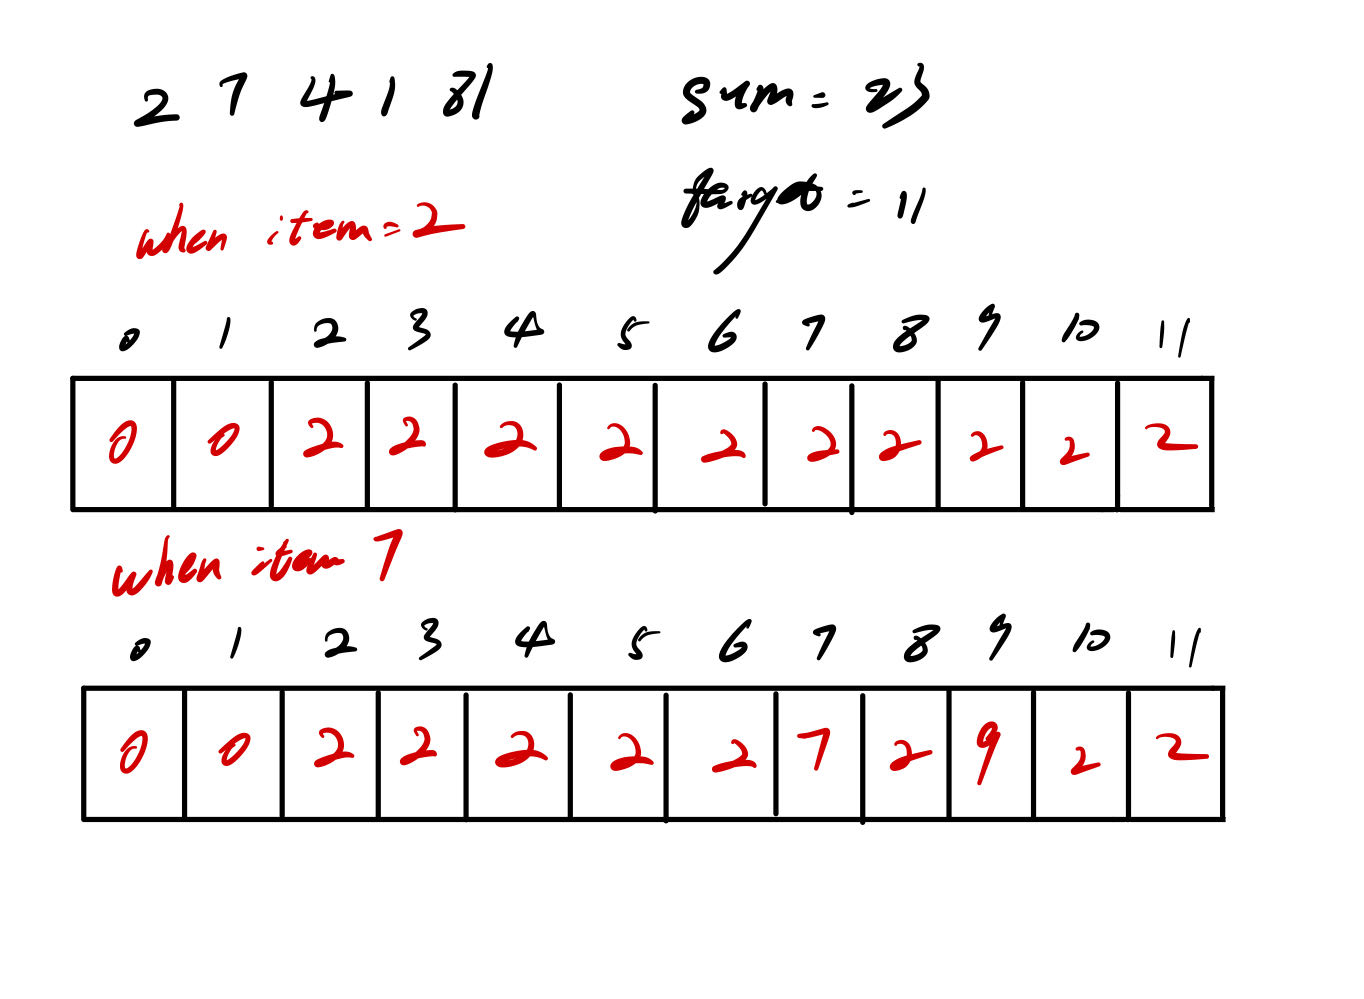 2 7 4 1 81 sum = 23
target = 11
when item = 2
0 1 2 3 4 5 6 7 8 9 10 11
0 0 2 2 2 2 2 2 2 2 2 2
when item 7
0 1 2 3 4 5 6 7 8 9 10 11
0 0 2 2 2 2 2 7 2 9 2 2